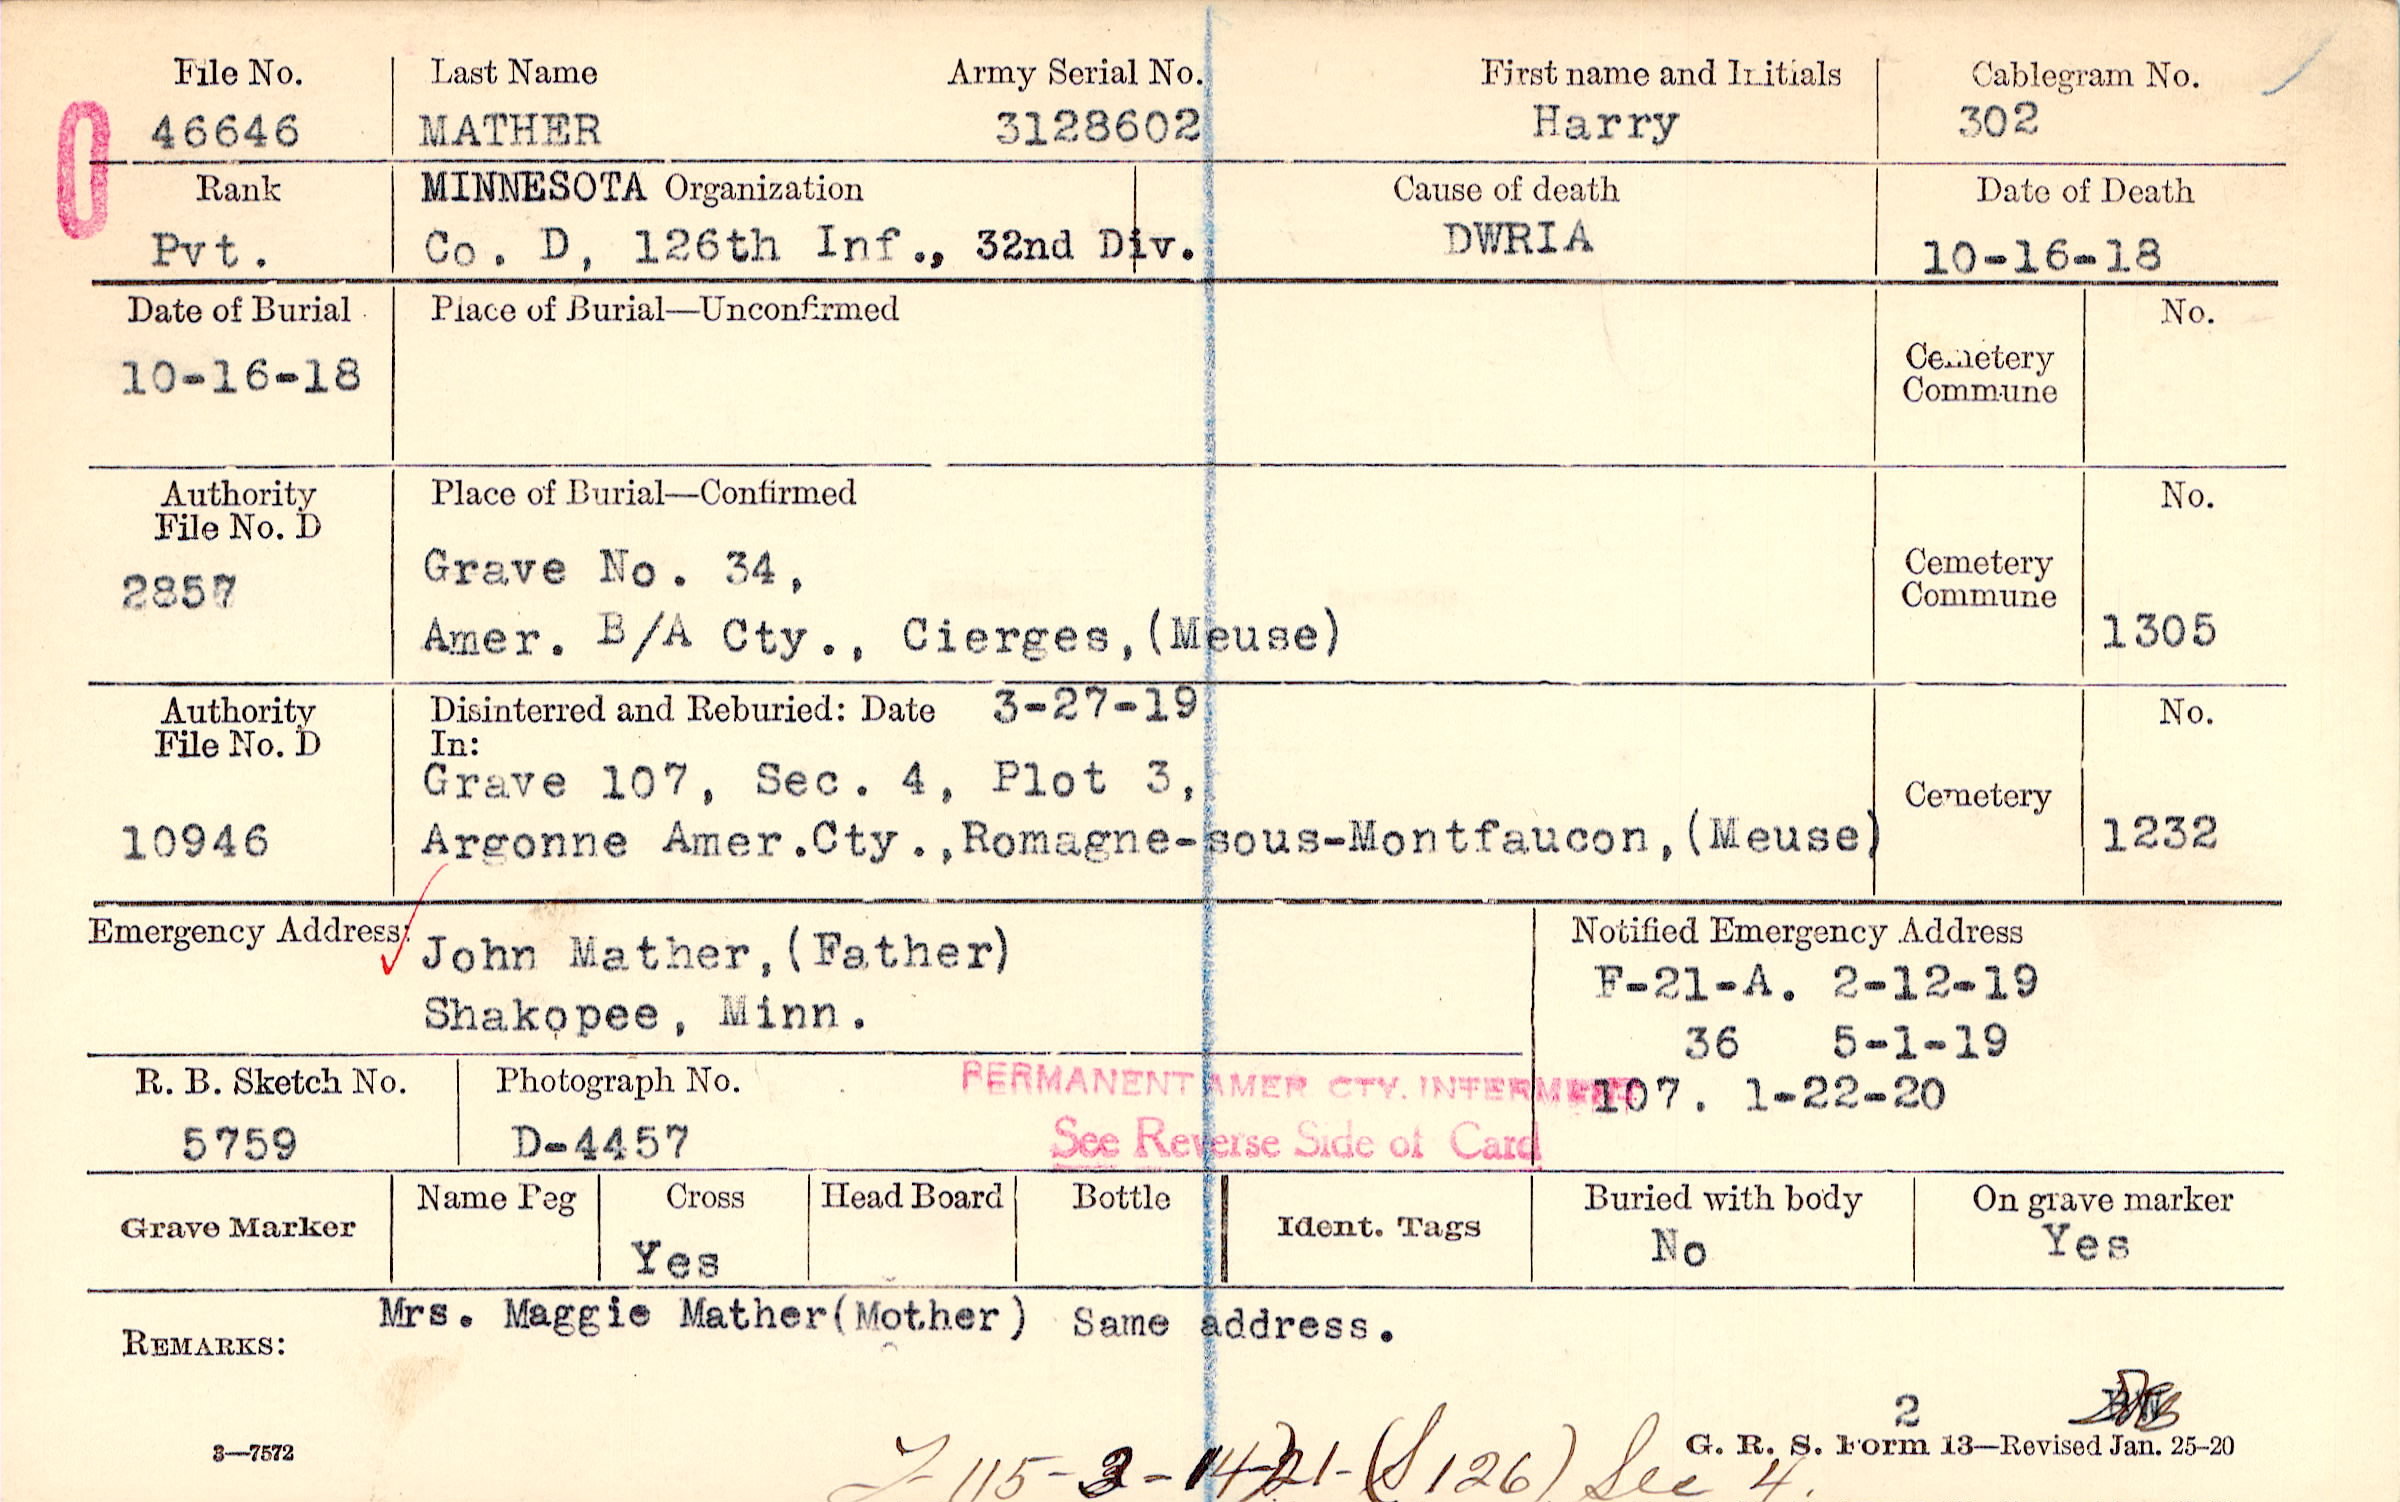 File No. Last Name Army Serial No. First name and Initials Cablegram No.
46646 MATHER 3128602 Harry 302
Rank MINNESOTA Organization Cause of death Date of Death
Pvt. Co. D, 126th Inf., 32nd Div. DWRIA 10-16-18
Date of Burial Place of Burial—Unconfirmed No.
10-16-18 Cemetery
Commune
Authority Place of Burial—Confirmed No.
File No. D
2857 Grave No. 34, Cemetery
Commune
Amer. B/A Cty., Cierges,(Meuse) 1305
Authority Disinterred and Reburied: Date 3-27-19 No.
File No. D In:
Grave 107, Sec. 4, Plot 3, Cemetery
10946 Argonne Amer.Cty.,Romagne-sous-Montfaucon,(Meuse) 1232
Emergency Address: John Mather,(Father) Notified Emergency Address
Shakopee, Minn. F-21-A. 2-12-19
36 5-1-19
R. B. Sketch No. Photograph No. PERMANENT AMER CTY. INTERMENT 107. 1-22-20
5759 D-4457 See Reverse Side of Card
Grave Marker Name Peg Cross Head Board Bottle Ident. Tags Buried with body On grave marker
Yes No Yes
REMARKS: Mrs. Maggie Mather(Mother) Same address.
2
3—7572 G. R. S. Form 13—Revised Jan. 25-20
115-3-14-21-(S 126) Sec 4.